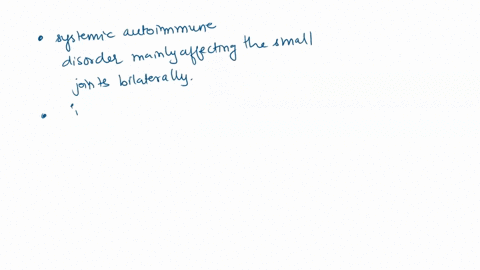 • systemic autoimmune
disorder mainly affecting the small
joints bilaterally.
•